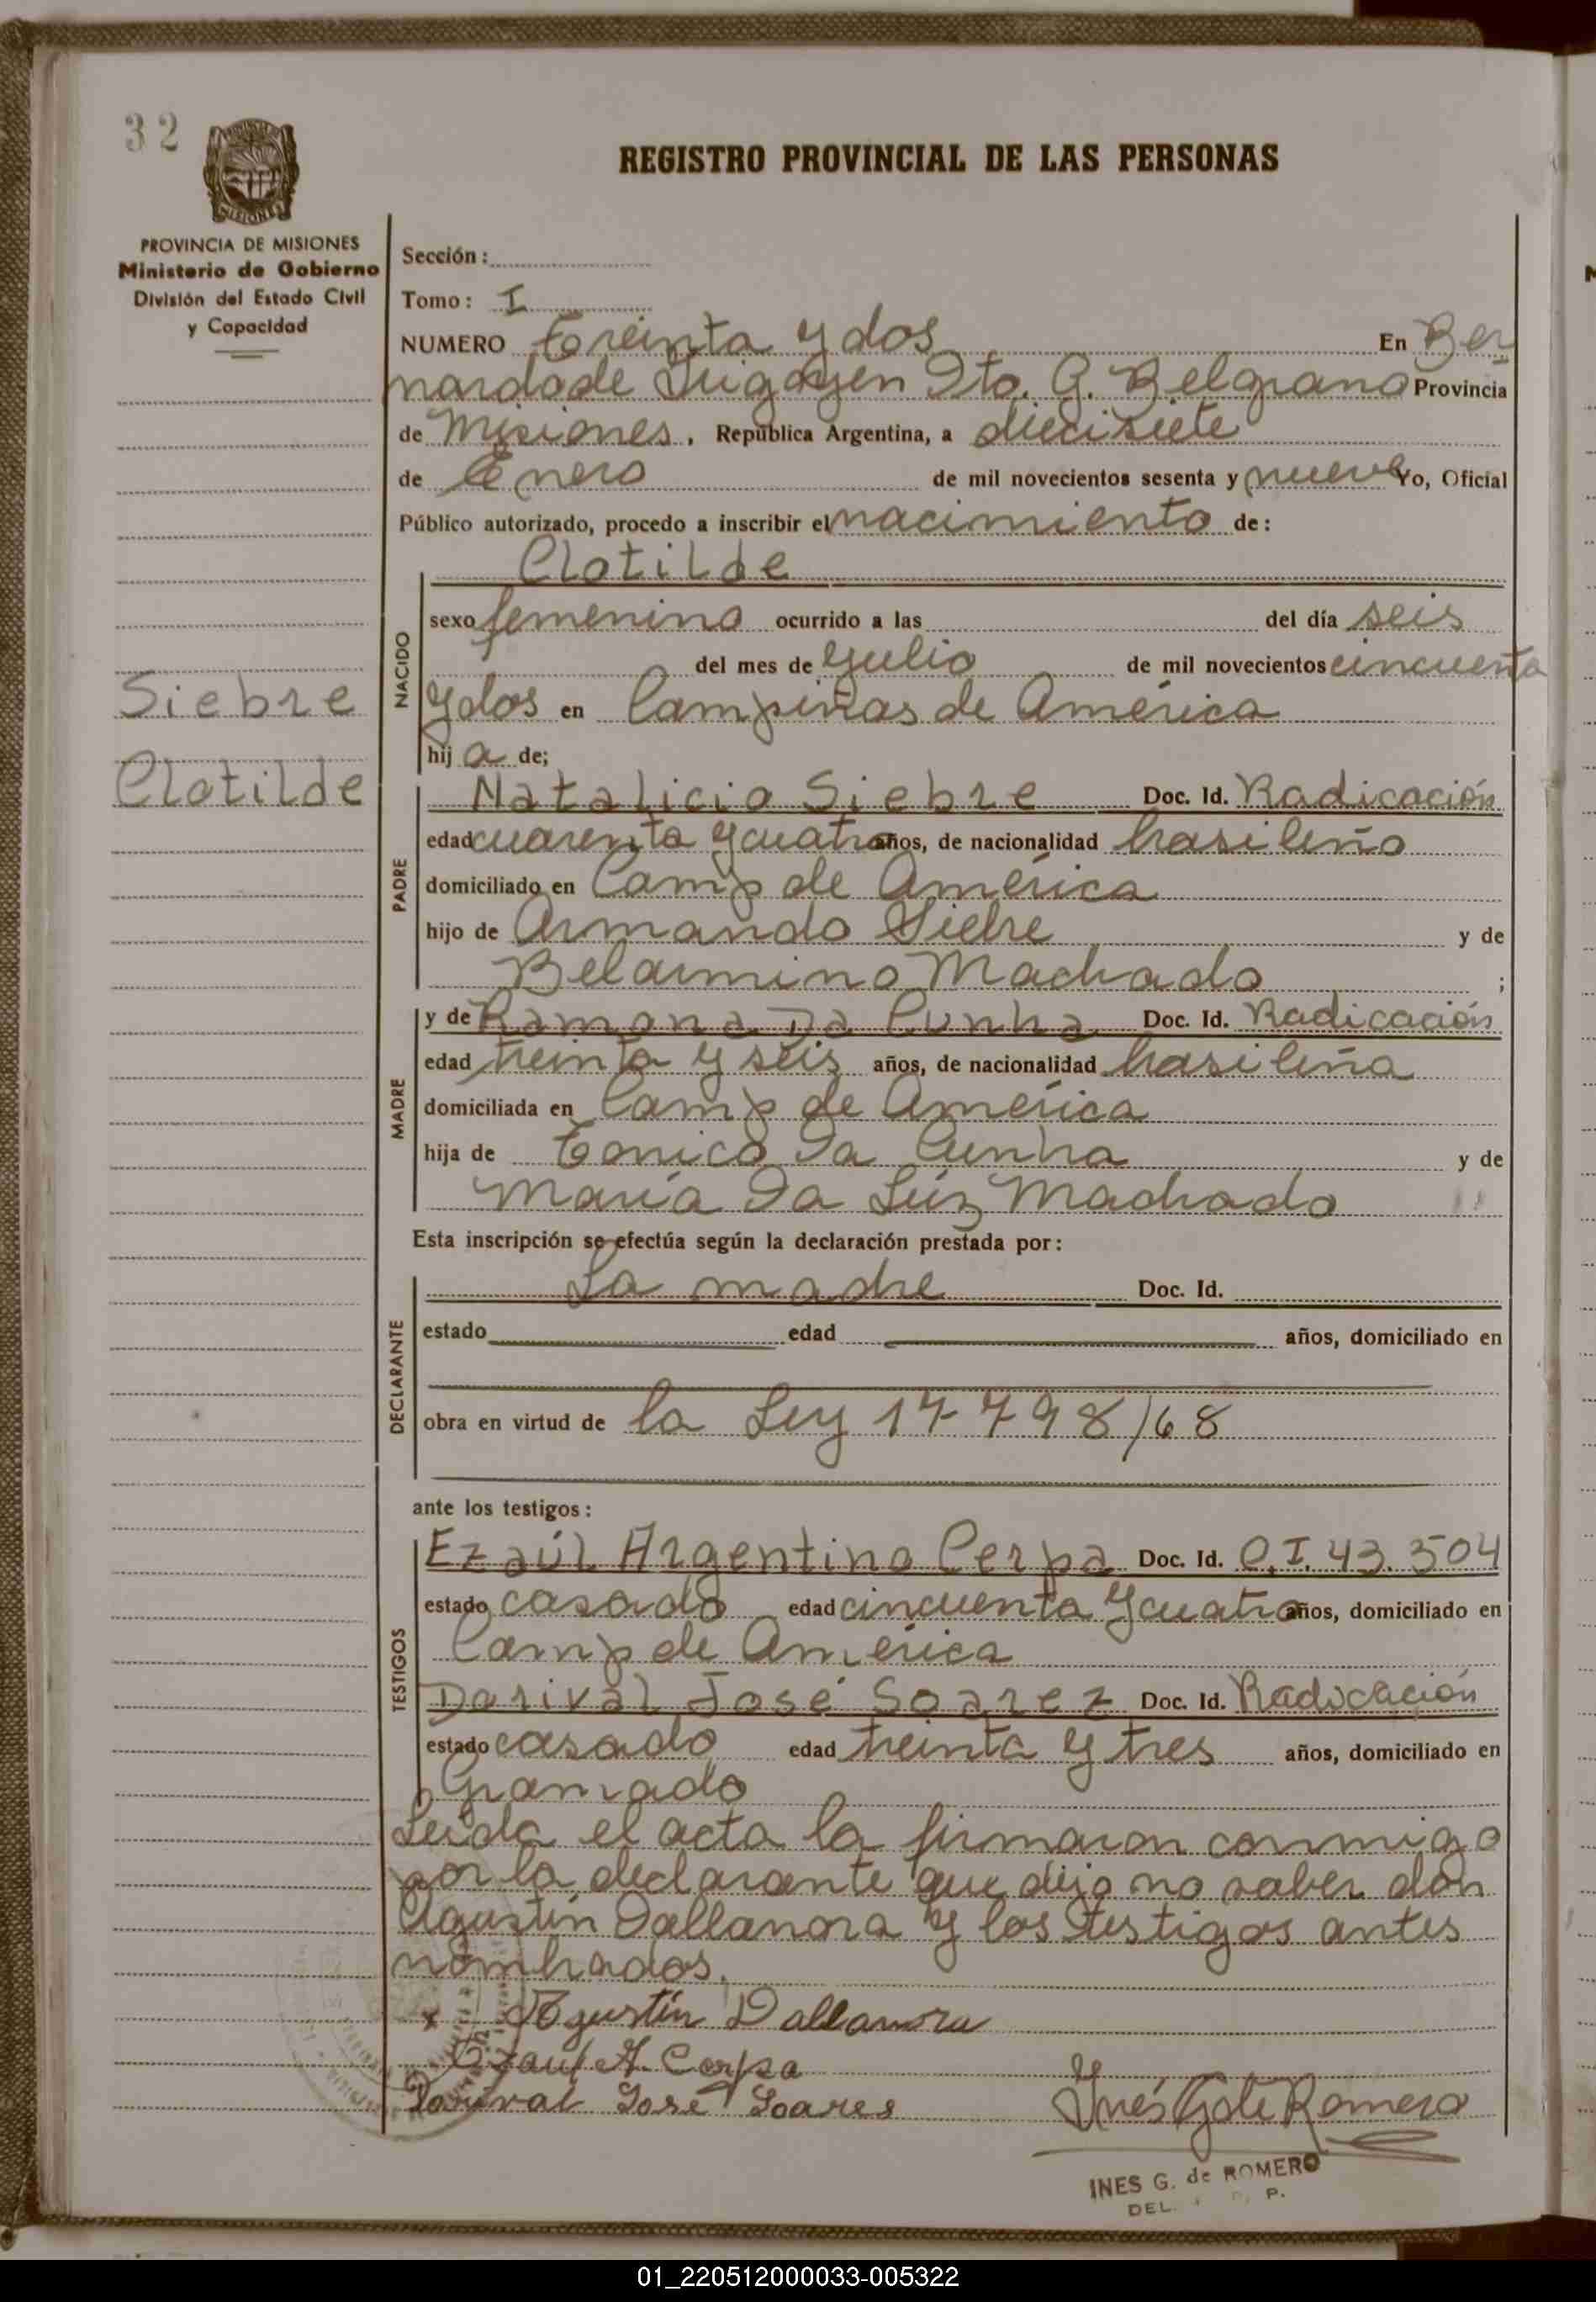 32
REGISTRO PROVINCIAL DE LAS PERSONAS
PROVINCIA DE MISIONES
Ministerio de Gobierno
División del Estado Civil
y Capacidad
Sección:
Tomo: I
NUMERO Treinta y dos En Ber
nardo de Irigoyen Dto. G. Belgrano Provincia
de Misiones, República Argentina, a diecisiete
de Enero de mil novecientos sesenta y nueve Yo, Oficial
Público autorizado, procedo a inscribir el nacimiento de:
Clotilde
NACIDO
sexo femenino ocurrido a las del día seis
del mes de Julio de mil novecientos cincuenta
Siebre
y dos en Campiñas de América
hij a de;
Clotilde
PADRE
Natalicio Siebre Doc. Id. Radicación
edad cuarenta y cuatro años, de nacionalidad brasileño
domiciliado en Camp de América
hijo de Armando Siebre y de
Belarmina Machado ;
MADRE
y de Ramona Da Cunha Doc. Id. Radicación
edad treinta y seis años, de nacionalidad brasileña
domiciliada en Camp de América
hija de Tonico Da Cunha y de
María Da Lúz Machado
Esta inscripción se efectúa según la declaración prestada por:
DECLARANTE
La madre Doc. Id.
estado edad años, domiciliado en
obra en virtud de la Ley 17798/68
ante los testigos:
TESTIGOS
Ezaúl Argentino Cerpa Doc. Id. C.I. 43.504
estado casado edad cincuenta y cuatro años, domiciliado en
Camp de América
Dorival José Soarez Doc. Id. Radicación
estado casado edad treinta y tres años, domiciliado en
Gramado
Leída el acta la firmaron conmigo
por la declarante que dijo no saber don
Agustín Dallanora y los testigos antes
nombrados.
x Agustín Dallanora
Ezaul A. Cerpa
Dorival José Soares Inés G de Romero
INES G. de ROMERO
DEL. P.
01_220512000033-005322